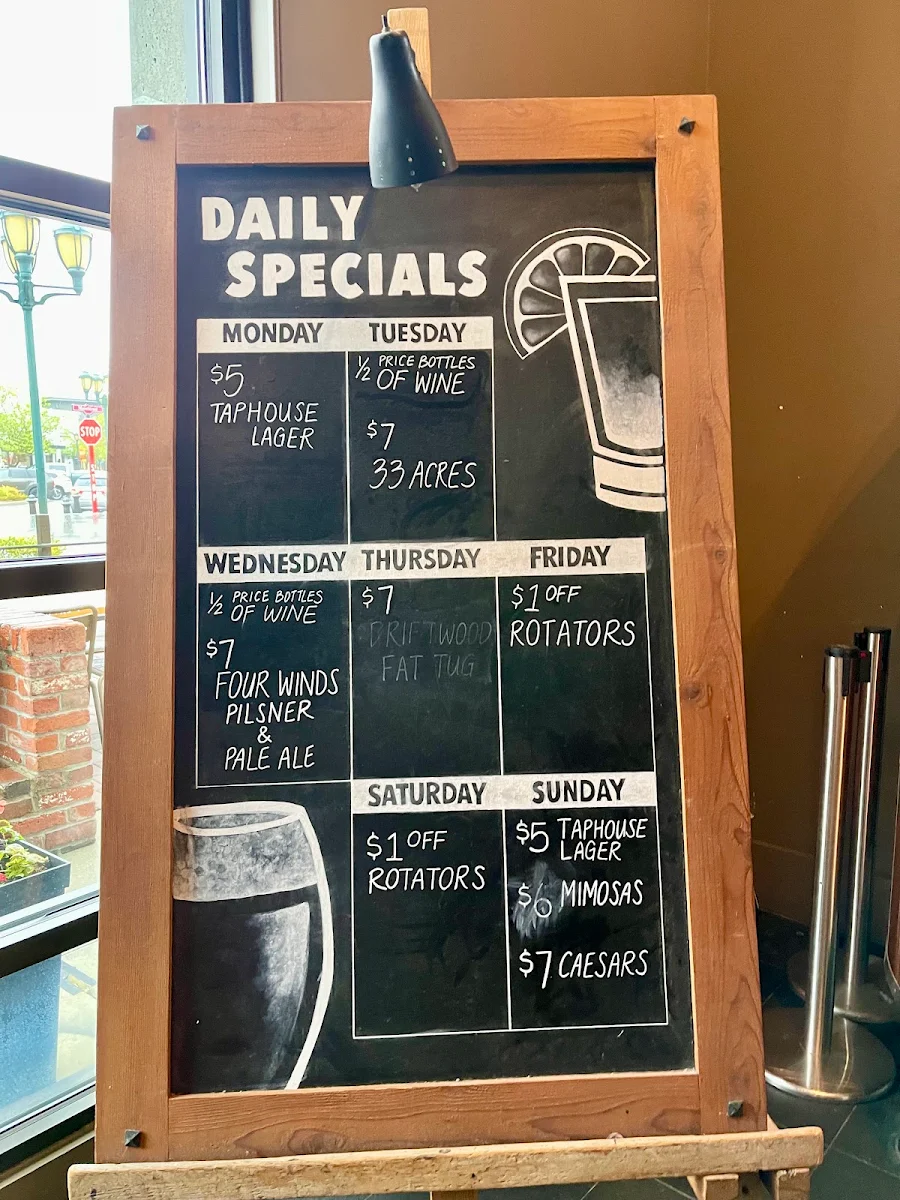 DAILY
SPECIALS
MONDAY
$5
TAPHOUSE
LAGER
TUESDAY
½ PRICE BOTTLES
OF WINE
$7
33 ACRES
WEDNESDAY
½ PRICE BOTTLES
OF WINE
$7
FOUR WINDS
PILSNER
&
PALE ALE
THURSDAY
$7
DRIFTWOOD
FAT TUG
FRIDAY
$1 OFF
ROTATORS
SATURDAY
$1 OFF
ROTATORS
SUNDAY
$5 TAPHOUSE
LAGER
$6 MIMOSAS
$7 CAESARS
STOP